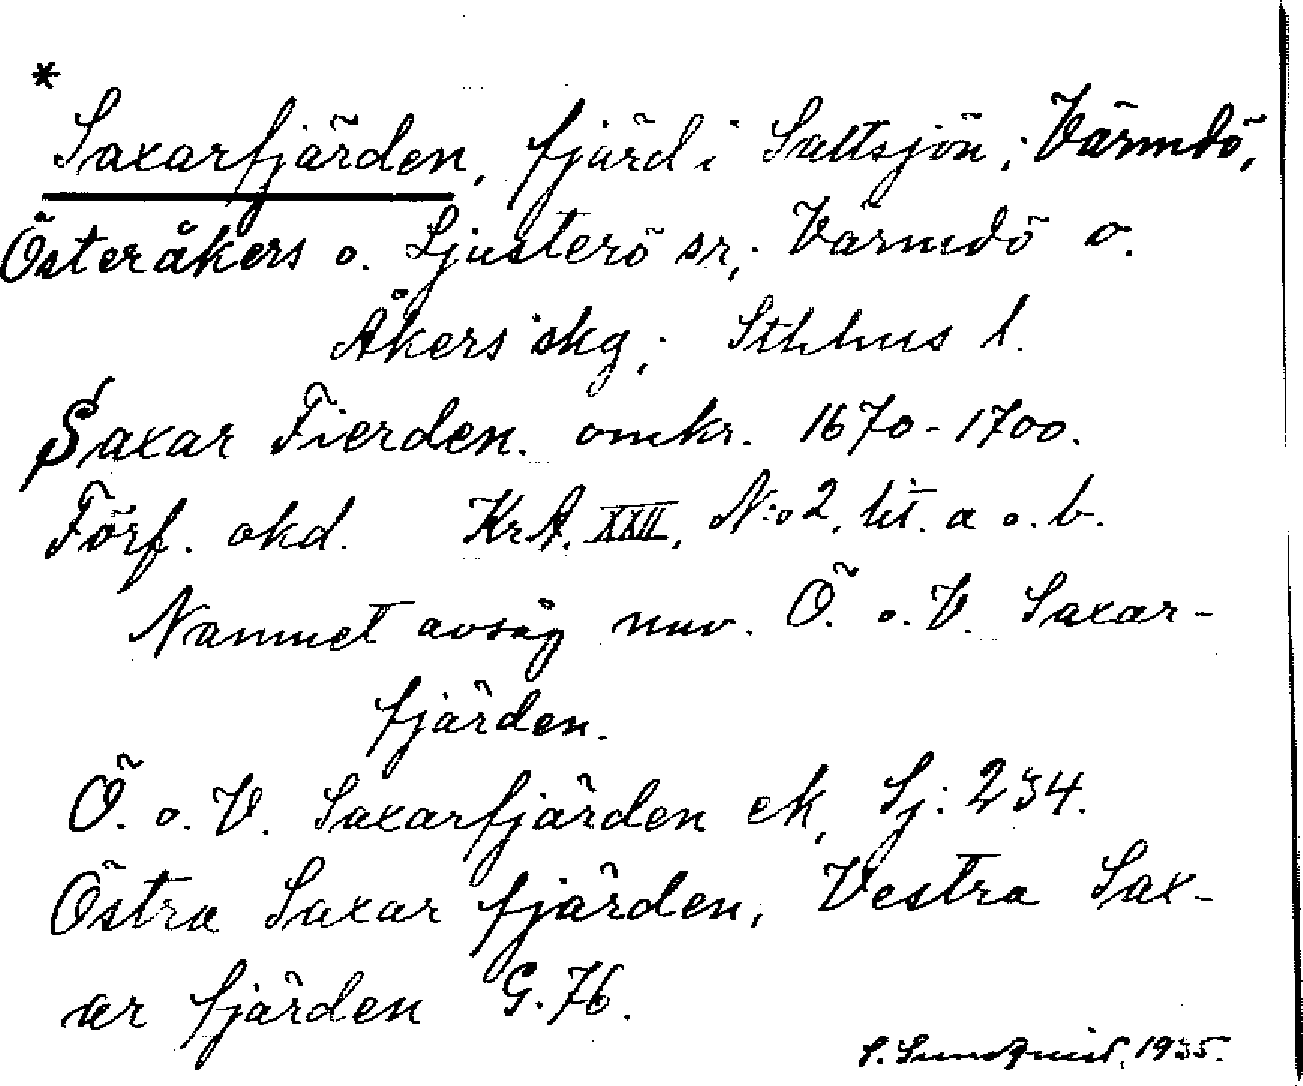 *
Saxarfjärden, fjärd i Saltsjön; Värmdö,
Österåkers o. Ljusterö sr; Värmdö o.
Åkers skg; Sthlms l.
Saxar Fierden. omkr. 1670-1700.
Förf. okd. KrA. XXIII, N:o 2, lit. a o. b.
Namnet avsåg nuv. Ö. o. V. Saxar-
fjärden.
Ö. o. V. Saxarfjärden ek, Sj: 234.
Östra Saxar fjärden, Vestra Sax-
ar fjärden G. 76.
S. Sundqvist, 1935.